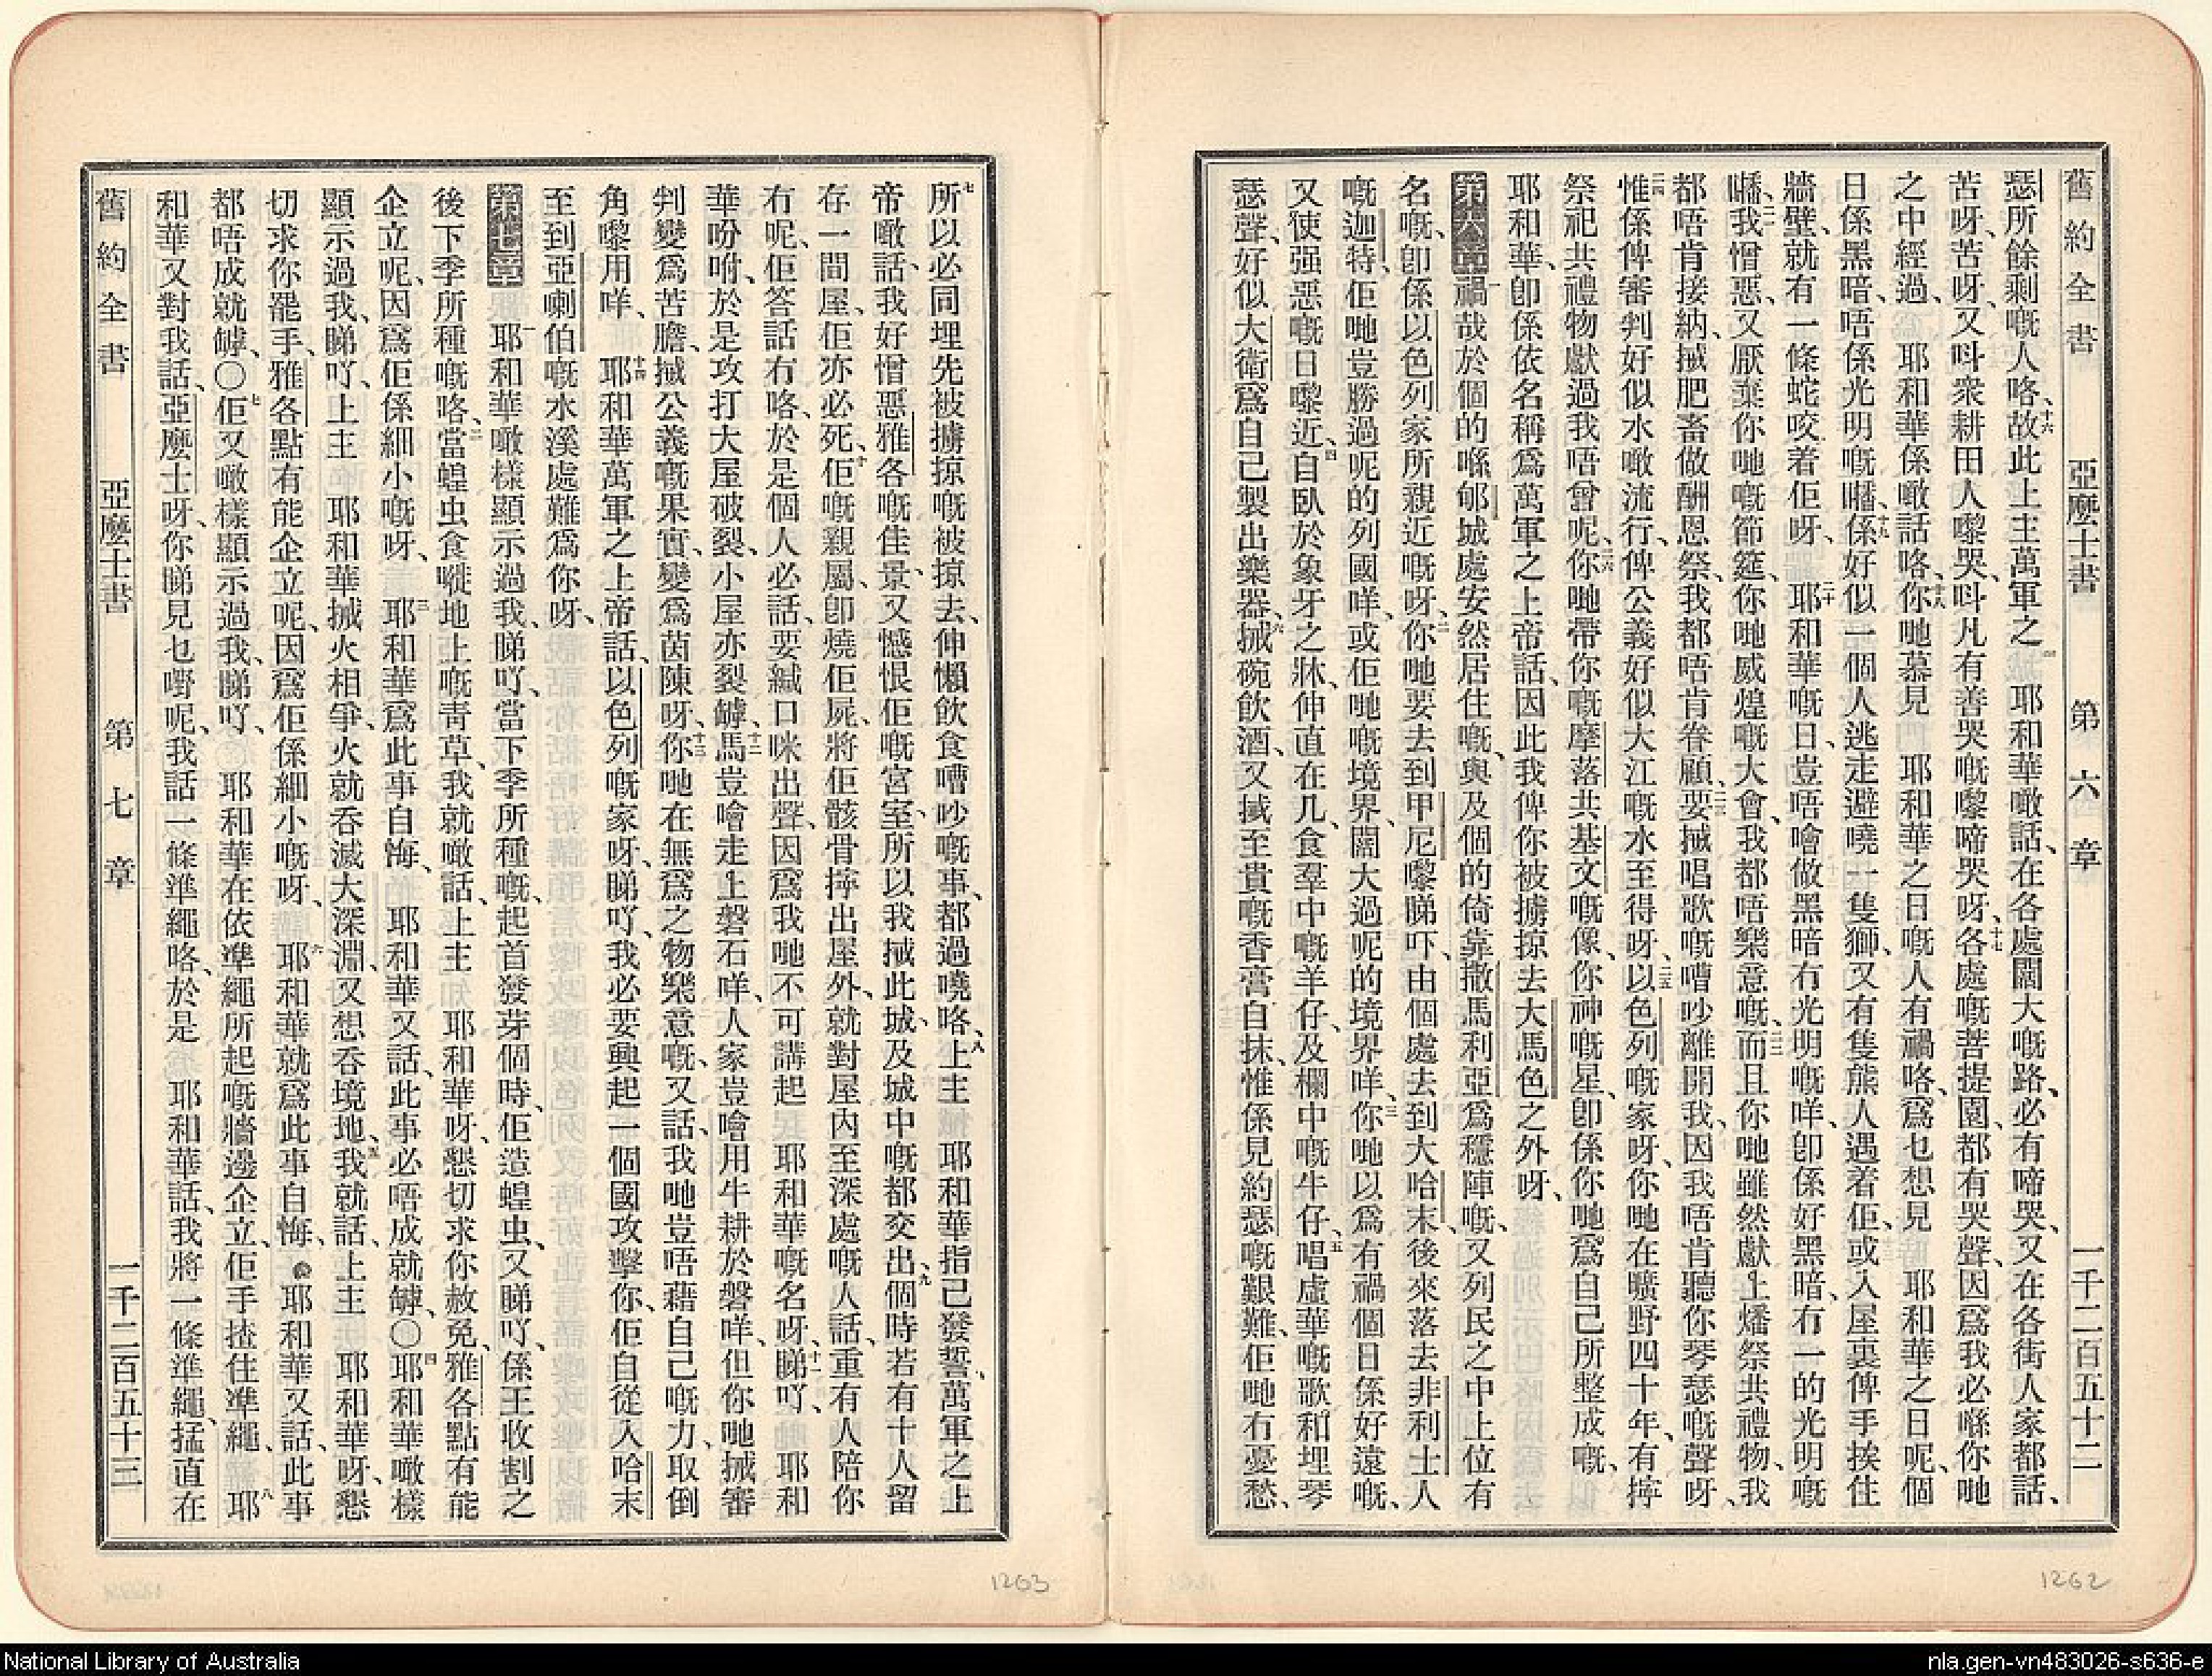 舊約全書 亞麼士書 第六章 一千二百五十二
瑟所餘剩嘅人咯、十六故此上主萬軍之 耶和華噉話、在各處闊大嘅路、必有啼哭、又在各街人家都話、
苦呀、苦呀、又呌衆耕田人嚟哭、呌凡有善哭嘅嚟啼哭呀、十七各處嘅菩提園、都有哭聲、因爲我必喺你哋
之中經過、爲 耶和華係噉話咯、十八你哋慕見 耶和華之日嘅人有禍咯、爲乜想見 耶和華之日呢、個
日係黑暗、唔係光明嘅𡂝、十九係好似一個人逃走避嘵一隻獅、又有隻熊人遇着佢、或入屋裏俾手挨住
牆壁、就有一條蛇咬着佢呀、 二十耶和華嘅日、豈唔噲做黑暗冇光明嘅咩、卽係好黑暗、冇一的光明嘅
𡂝、二一我憎惡、又厭棄你哋嘅節筵、你哋威煌嘅大會、我都唔樂意嘅、二二而且你哋雖然獻上燔祭共禮物、我
都唔肯接納、搣肥畜做酬恩祭、我都唔肯眷顧、二三要搣唱歌嘅嘈吵離開我、因我唔肯聽你琴瑟嘅聲呀、
二四惟係俾審判好似水噉流行、俾公義好似大江嘅水至得呀、二五以色列嘅家呀、你哋在曠野四十年、有擰
祭祀共禮物獻過我唔曾呢、二六你哋帶你嘅摩落共基文嘅像、你神嘅星、卽係你哋爲自己所整成嘅、
耶和華、卽係依名稱爲萬軍之上帝話、因此我俾你被擄掠去大馬色之外呀、
第六章 一禍哉於個的喺郇城處安然居住嘅、與及個的倚靠撒馬利亞爲穩陣嘅、又列民之中上位有
名嘅、卽係以色列家所親近嘅呀、二你哋要去到甲尼嚟睇吓、由個處去到大哈末、後來落去非利士人
嘅迦特、佢哋豈勝過呢的列國咩、或佢哋嘅境界、闊大過呢的境界咩、三你哋以爲有禍個日係好遠嘅、
又使强惡嘅日嚟近、四自臥於象牙之牀、伸直在几、食羣中嘅羊仔、及欄中嘅牛仔、五唱虛華嘅歌和埋琴
瑟聲、好似大衛爲自己製出樂器、六搣碗飲酒、又搣至貴嘅香膏自抹、惟係見約瑟嘅艱難、佢哋冇憂愁、
1262
七所以必同埋先被擄掠嘅被掠去、伸懶飲食嘈吵嘅事、都過嘵咯、八上主 耶和華指己發誓、萬軍之上
帝噉話、我好憎惡雅各嘅佳景、又憾恨佢嘅宮室、所以我搣此城、及城中嘅都交出、九個時若有十人留
存一間屋、佢亦必死、十佢嘅親屬、卽燒佢屍、將佢骸骨擰出屋外、就對屋內至深處嘅人話、重有人陪你
冇呢、佢答話冇咯、於是個人必話、要緘口咪出聲、因爲我哋不可講起 耶和華嘅名呀、十一睇吖、 耶和
華吩咐、於是攻打大屋破裂、小屋亦裂罅、十二馬豈噲走上磐石咩、人家豈噲用牛耕於磐咩、但你哋搣審
判變爲苦膽、搣公義嘅果實、變爲茵陳呀、十三你哋在無爲之物樂意嘅、又話、我哋豈唔藉自己嘅力、取倒
角嚟用咩、 十四耶和華萬軍之上帝話、以色列嘅家呀、睇吖、我必要興起一個國攻擊你、佢自從入哈末
至到亞喇伯嘅水溪處難爲你呀、
第七章 一耶和華噉樣顯示過我、睇吖、當下季所種嘅、起首發芽個時、佢造蝗虫、又睇吖、係王收割之
後下季所種嘅咯、二當蝗虫食嘥地上嘅青草、我就噉話、上主 耶和華呀、懇切求你赦免、雅各點有能
企立呢、因爲佢係細小嘅呀、 三耶和華爲此事自悔、 耶和華又話、此事必唔成就罅、〇四耶和華噉樣
顯示過我、睇吖、上主 耶和華搣火相爭、火就吞滅大深淵、又想吞境地、五我就話、上主 耶和華呀、懇
切求你罷手、雅各點有能企立呢、因爲佢係細小嘅呀、 六耶和華就爲此事自悔、 耶和華又話、此事
都唔成就罅、〇七佢又噉樣顯示過我、睇吖、 耶和華在依準繩所起嘅牆邊企立、佢手揸住準繩、 八耶
和華又對我話、亞麼士呀、你睇見乜嘢呢、我話一條準繩咯、於是 耶和華話、我將一條準繩、掹直在
舊約全書 亞麼士書 第七章 一千二百五十三
1263
National Library of Australia
nla.gen-vn483026-s636-e